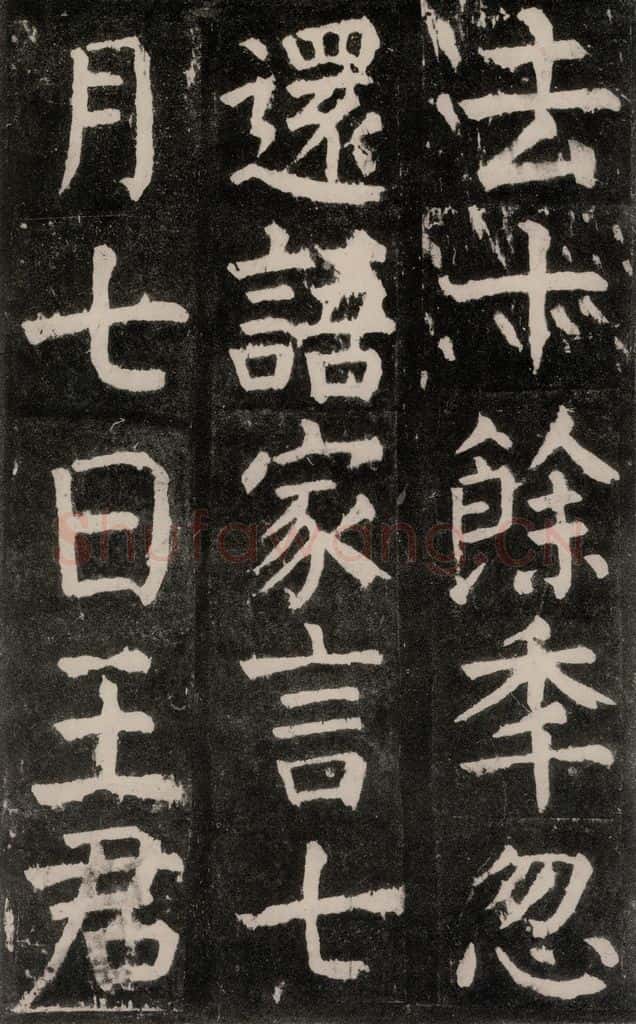 法十餘秊忽
還語家言七
月七日王君
Shufawang.CN